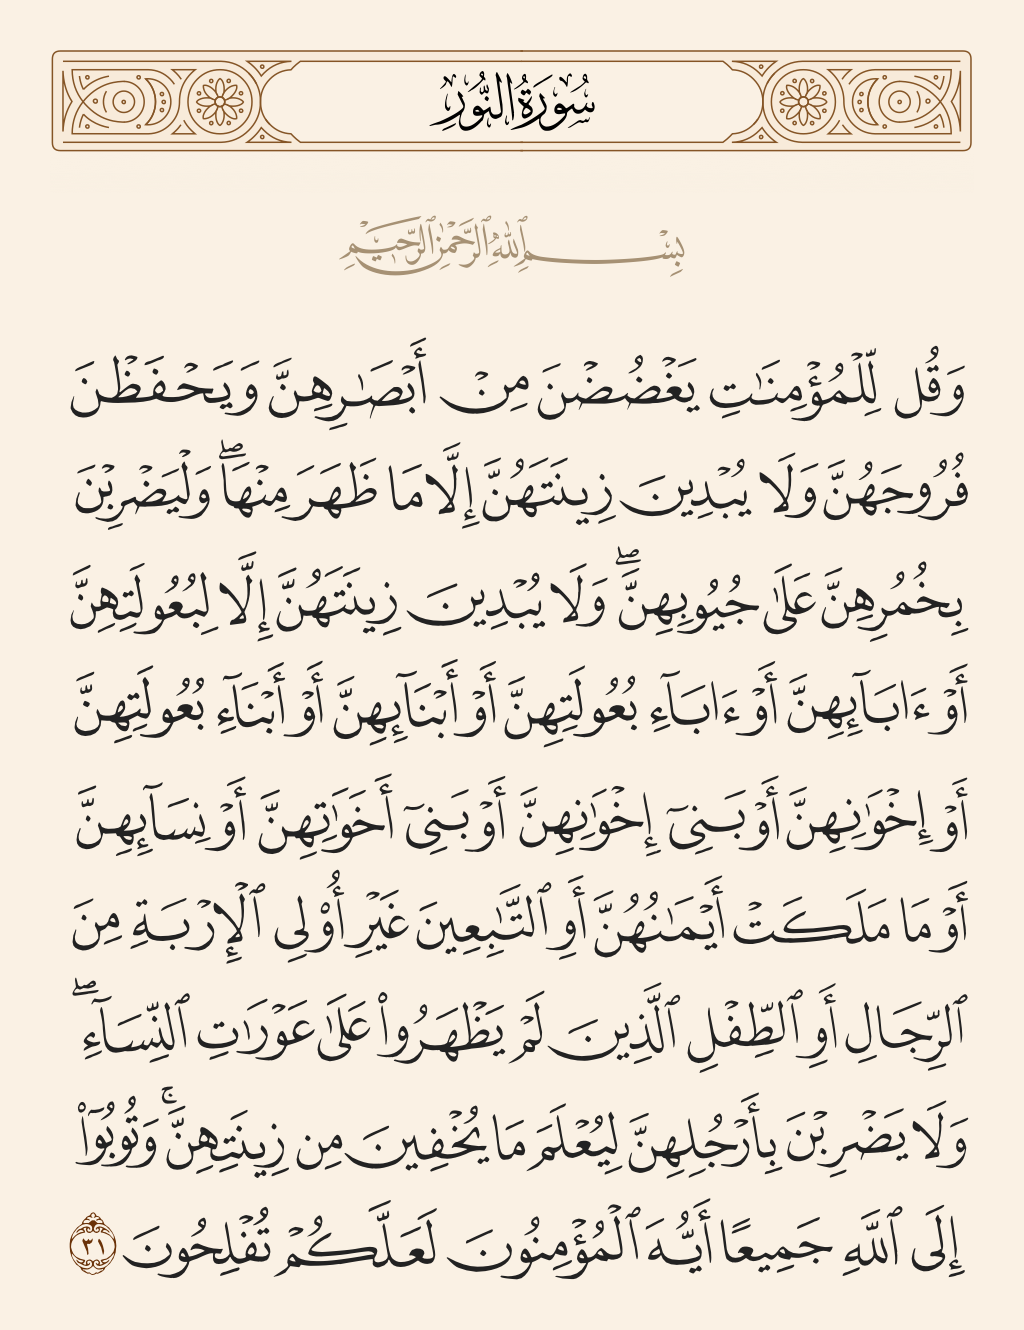 سُورَةُ النُّورِ
بِسْمِ ٱللَّهِ ٱلرَّحْمَٰنِ ٱلرَّحِيمِ
وَقُل لِّلْمُؤْمِنَٰتِ يَغْضُضْنَ مِنْ أَبْصَٰرِهِنَّ وَيَحْفَظْنَ
فُرُوجَهُنَّ وَلَا يُبْدِينَ زِينَتَهُنَّ إِلَّا مَا ظَهَرَ مِنْهَا ۖ وَلْيَضْرِبْنَ
بِخُمُرِهِنَّ عَلَىٰ جُيُوبِهِنَّ ۖ وَلَا يُبْدِينَ زِينَتَهُنَّ إِلَّا لِبُعُولَتِهِنَّ
أَوْ ءَابَآئِهِنَّ أَوْ ءَابَآءِ بُعُولَتِهِنَّ أَوْ أَبْنَآئِهِنَّ أَوْ أَبْنَآءِ بُعُولَتِهِنَّ
أَوْ إِخْوَٰنِهِنَّ أَوْ بَنِىٓ إِخْوَٰنِهِنَّ أَوْ بَنِىٓ أَخَوَٰتِهِنَّ أَوْ نِسَآئِهِنَّ
أَوْ مَا مَلَكَتْ أَيْمَٰنُهُنَّ أَوِ ٱلتَّٰبِعِينَ غَيْرِ أُو۟لِى ٱلْإِرْبَةِ مِنَ
ٱلرِّجَالِ أَوِ ٱلطِّفْلِ ٱلَّذِينَ لَمْ يَظْهَرُوا۟ عَلَىٰ عَوْرَٰتِ ٱلنِّسَآءِ ۖ
وَلَا يَضْرِبْنَ بِأَرْجُلِهِنَّ لِيُعْلَمَ مَا يُخْفِينَ مِن زِينَتِهِنَّ ۚ وَتُوبُوٓا۟
إِلَى ٱللَّهِ جَمِيعًا أَيُّهَ ٱلْمُؤْمِنُونَ لَعَلَّكُمْ تُفْلِحُونَ ٣١